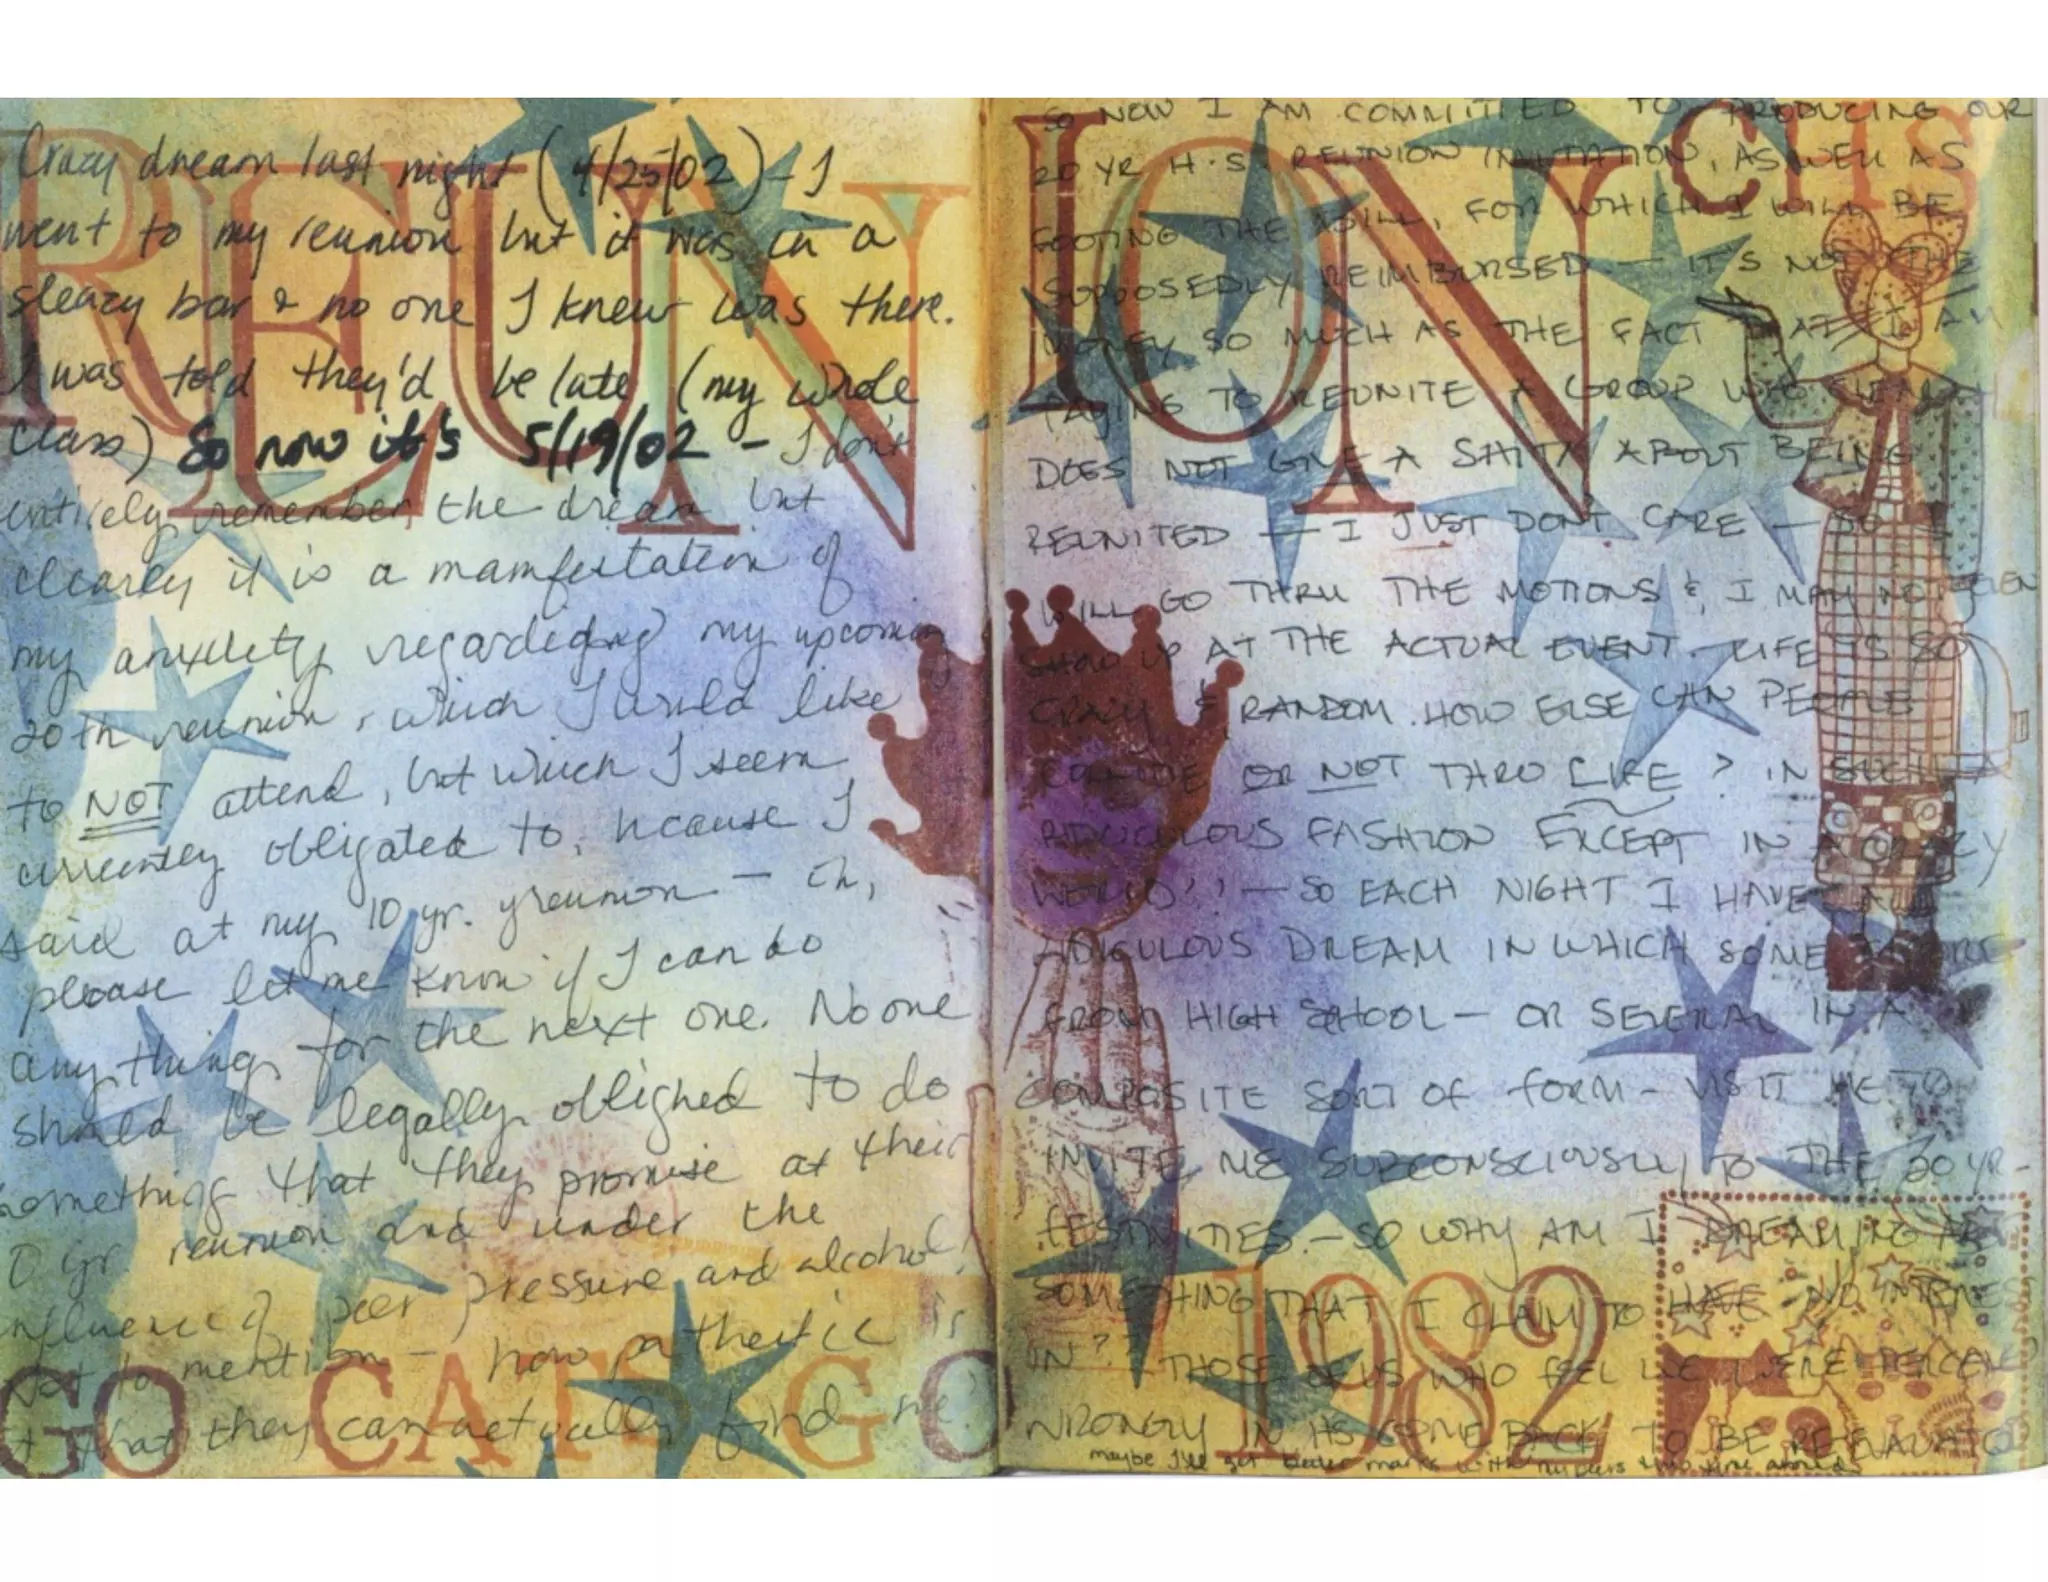 REUNION
CHS
Crazy dream last night (4/25/02) - I
went to my reunion but it was in a
sleazy bar & no one I knew was there.
I was told they'd be late (my whole
class) So now it's 5/19/02 - I don't
entirely remember the dream but
clearly it is a manifestation of
my anxiety regarding my upcoming
20th reunion, which I would like
to NOT attend, but which I seem
currently obligated to, because I
said at my 10 yr. reunion - oh,
please let me know if I can do
anything for the next one. No one
should be legally obligned to do
something that they promise at their
10 yr reunion and under the
influence of peer pressure and alcohol!
Not to mention - how pathetic is
it that they can actually find me?
GO CATS GO
SO NOW I AM COMMITTED TO PRODUCING OUR
20 YR H.S. REUNION INVITATION, AS WELL AS
FOOTING THE BILL, FOR WHICH I WILL BE
SUPPOSEDLY REIMBURSED - IT'S NOT THE
MONEY SO MUCH AS THE FACT THAT I AM
TRYING TO REUNITE A GROUP WHO CLEARLY
DOES NOT GIVE A SHIT ABOUT BEING
REUNITED - I JUST DON'T CARE - SO I
WILL GO THRU THE MOTIONS & I MAY NOT EVEN
SHOW UP AT THE ACTUAL EVENT. LIFE IS SO
CRAZY & RANDOM. HOW ELSE CAN PEOPLE
COLLIDE OR NOT THRU LIFE? IN SUCH A
RIDICULOUS FASHION EXCEPT IN A CRAZY
WORLD!! - SO EACH NIGHT I HAVE A
RIDICULOUS DREAM IN WHICH SOME FIGURE
FROM HIGH SCHOOL - OR SEVERAL IN A
COMPOSITE SORT OF FORM - VISIT ME TO
INVITE ME SUBCONSCIOUSLY TO THE 20 YR-
FESTIVITIES. - SO WHY AM I DREAMING ABT
SOMETHING THAT I CLAIM TO HAVE NO INTEREST
IN?? THOSE OF US WHO FEEL WE WERE PERCEIVED
WRONGLY IN HS COME BACK TO BE REEVALUATED
maybe I'll get better marks with my peers this time around
1982